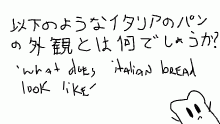 以下のようなイタリアのパン
の外観とは何でしょうか?
'what does italian bread
look like'